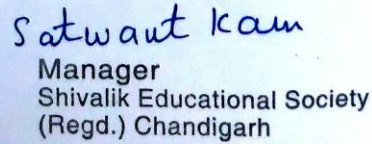 Satwant Kaur
Manager
Shivalik Educational Society
(Regd.) Chandigarh